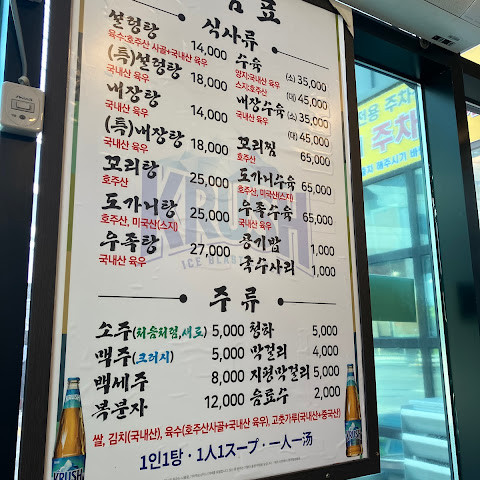 표
식사류
설렁탕 14,000
육수:호주산 사골+국내산 육우
(특)설렁탕 18,000
국내산 육우
내장탕 14,000
국내산 육우
(특)내장탕 18,000
국내산 육우
꼬리탕 25,000
호주산
도가니탕 25,000
호주산, 미국산(스지)
우족탕 27,000
국내산 육우
수육 (소) 35,000
양지:국내산 육우
스지:호주산 (대) 45,000
내장수육 (소) 35,000
국내산 육우
(대) 45,000
꼬리찜 65,000
호주산
도가니수육 65,000
호주산, 미국산(스지)
우족수육 65,000
국내산 육우
공기밥 1,000
국수사리 1,000
KRUSH
주류
소주(처음처럼,새로) 5,000
맥주(크러시) 5,000
백세주 8,000
복분자 12,000
청하 5,000
막걸리 4,000
지평막걸리 5,000
음료수 2,000
쌀, 김치(국내산), 육수(호주산사골+국내산 육우), 고춧가루(국내산+중국산)
1인1탕 · 1人1スープ · 一人一汤
KRUSH
전용 주차
주차